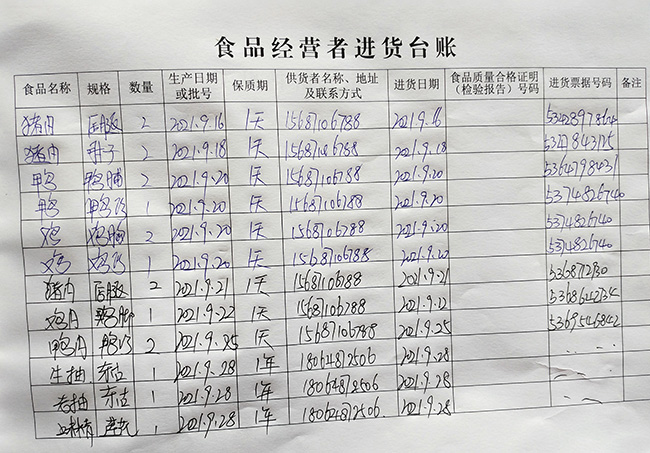 食品经营者进货台账
食品名称 规格 数量 生产日期或批号 保质期 供货者名称、地址及联系方式 进货日期 食品质量合格证明(检验报告)号码 进货票据号码 备注
猪肉 后腿 2 2021.9.16 1天 15687106788 2021.9.16
猪肉 2 2021.9.18 1天 15687106788 2021.9.18
鸭 鸭脯 2 2021.9.20 1天 15687106788 2021.9.20 5364798431
鸭 1 2021.9.20 1天 15687106788 2021.9.20 5374826740
鸡 鸡胸 2 2021.9.20 1天 15687106788 2021.9.20 5374826740
鸡 1 2021.9.20 1天 15687106788 2021.9.20 5374826740
猪肉 后腿 2 2021.9.21 1天 15687106788 2021.9.21
鸡肉 1 2021.9.22 1天 15687106788 2021.9.22 5368642734
鸭肉 2 2021.9.25 1天 15687106788 2021.9.25 5369546842
生抽 东古 1 2021.9.28 1年 18064872506 2021.9.28
老抽 东古 1 2021.9.28 1年 18064872506 2021.9.28
味精 1 2021.9.28 1年 18064872506 2021.9.28